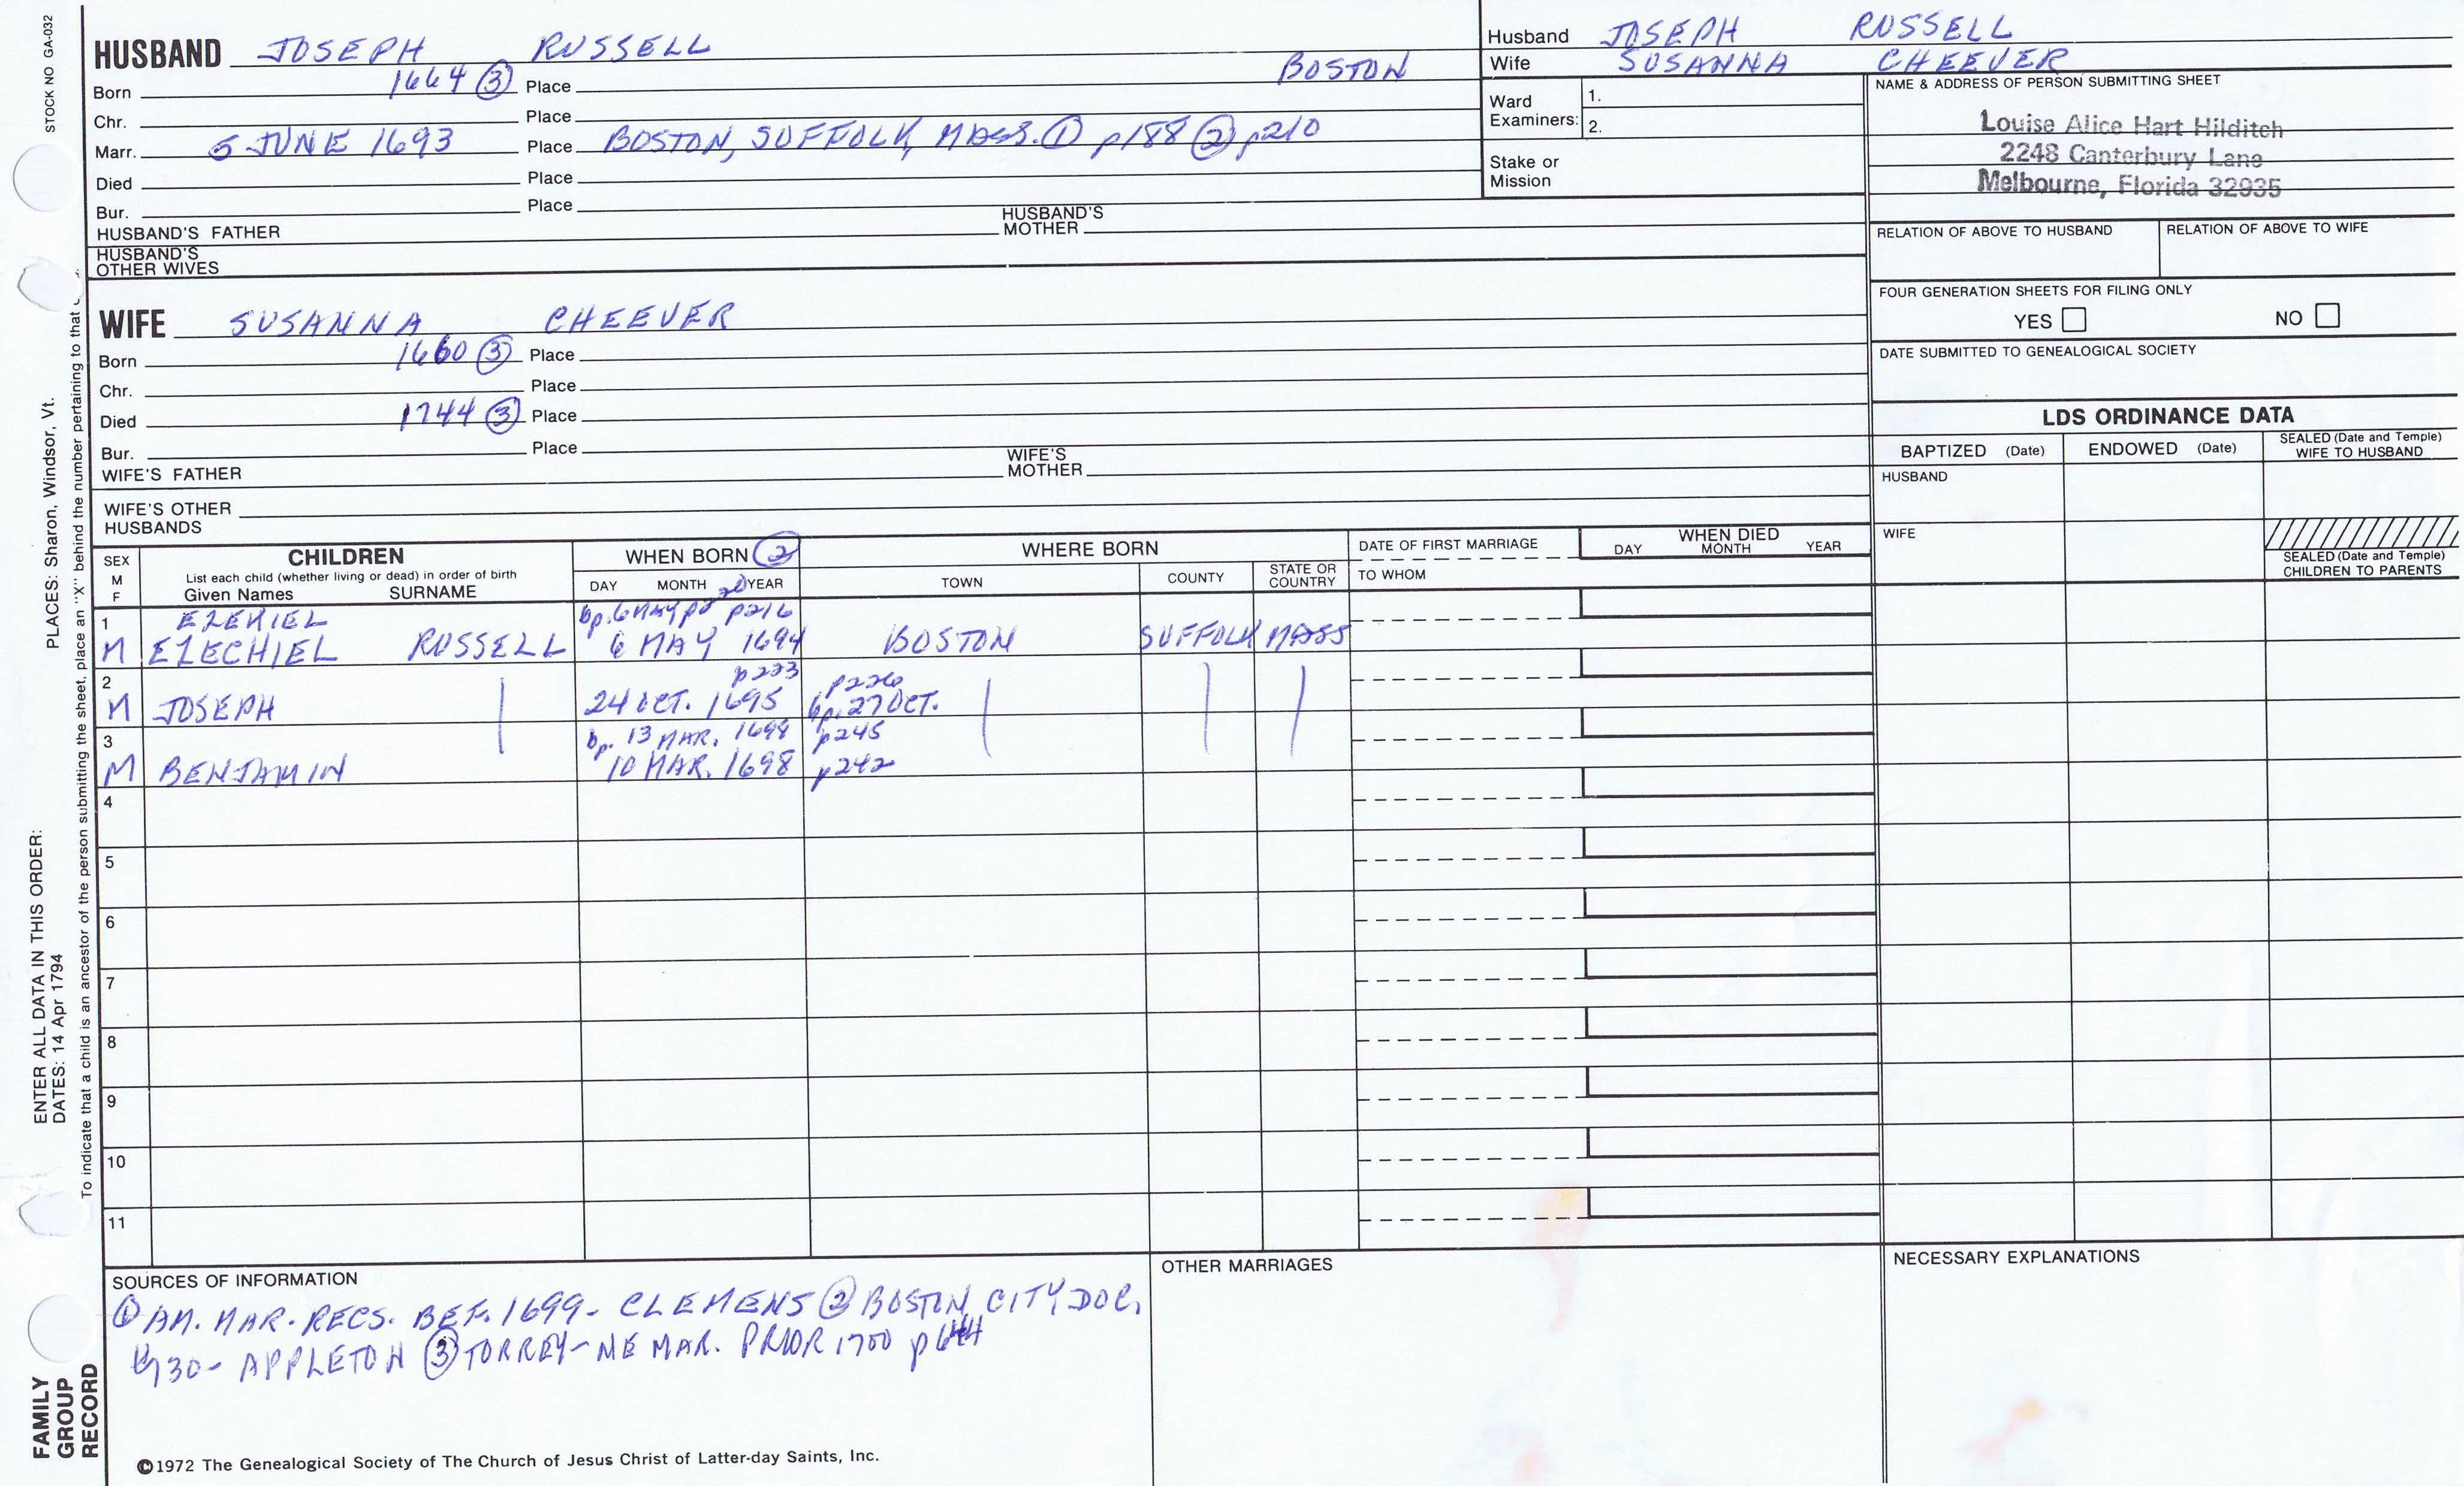 STOCK NO GA-032
HUSBAND JOSEPH RUSSELL
Born 1664 ③ Place BOSTON
Chr. Place
Marr. 5 JUNE 1693 Place BOSTON, SUFFOLK, MASS. ① p188 ② p210
Died Place
Bur. Place
HUSBAND'S FATHER HUSBAND'S MOTHER
HUSBAND'S OTHER WIVES
Husband JOSEPH RUSSELL
Wife SUSANNA CHEEVER
Ward Examiners: 1.
2.
Stake or Mission
NAME & ADDRESS OF PERSON SUBMITTING SHEET
Louise Alice Hart Hilditch
2248 Canterbury Lane
Melbourne, Florida 32935
RELATION OF ABOVE TO HUSBAND RELATION OF ABOVE TO WIFE
FOUR GENERATION SHEETS FOR FILING ONLY
YES NO
DATE SUBMITTED TO GENEALOGICAL SOCIETY
WIFE SUSANNA CHEEVER
Born 1660 ③ Place
Chr. Place
Died 1744 ③ Place
Bur. Place
WIFE'S FATHER WIFE'S MOTHER
WIFE'S OTHER HUSBANDS
LDS ORDINANCE DATA
BAPTIZED (Date) ENDOWED (Date) SEALED (Date and Temple) WIFE TO HUSBAND
HUSBAND
WIFE
SEALED (Date and Temple) CHILDREN TO PARENTS
SEX M F
CHILDREN
List each child (whether living or dead) in order of birth
Given Names SURNAME
WHEN BORN ②
DAY MONTH YEAR
WHERE BORN
TOWN COUNTY STATE OR COUNTRY
DATE OF FIRST MARRIAGE
TO WHOM
WHEN DIED
DAY MONTH YEAR
1 EZEKIEL bp. 6 MAY p216
M EZECHIEL RUSSELL 6 MAY 1694 BOSTON SUFFOLK MASS
2 p223 p226
M JOSEPH 24 OCT. 1695 bp. 27 OCT.
3 bp. 13 MAR. 1698 p245
M BENJAMIN 10 MAR. 1698 p242
4
5
6
7
8
9
10
11
SOURCES OF INFORMATION
① AM. MAR. RECS. BEF. 1699 - CLEMENS ② BOSTON CITY DOC.
130 - APPLETON ③ TORREY - NE MAR. PRIOR 1700 p644
OTHER MARRIAGES
NECESSARY EXPLANATIONS
©1972 The Genealogical Society of The Church of Jesus Christ of Latter-day Saints, Inc.
FAMILY GROUP RECORD
ENTER ALL DATA IN THIS ORDER:
DATES: 14 Apr 1794
PLACES: Sharon, Windsor, Vt.
To indicate that a child is an ancestor of the person submitting the sheet, place an "X" behind the number pertaining to that